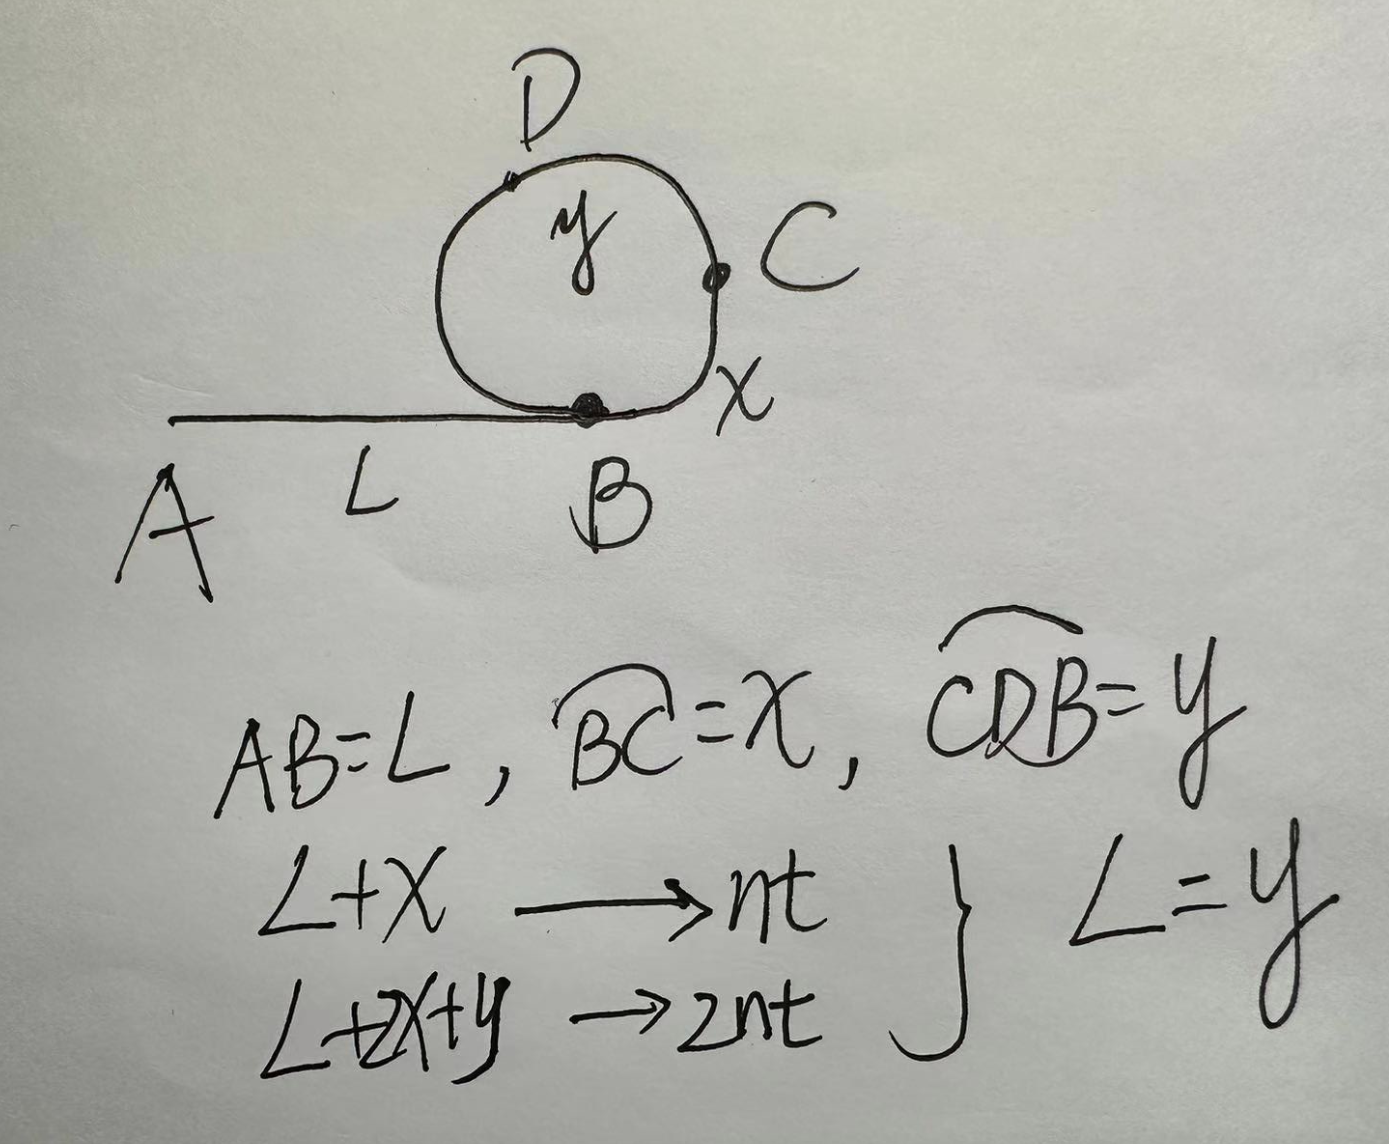 D
y
C
x
L
A
B
AB=L, BC=x, CDB=y
L+x → nt
L+2x+y → 2nt } L=y